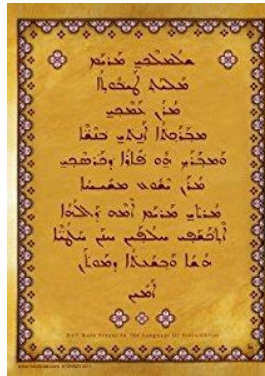 ܫܠܡܠܟܝ ܡܪܝܡ
ܡܠܝܬ ܛܝܒܘܬܐ
ܡܪܢ ܥܡܟܝ
ܡܒܪܟܬܐ ܐܢܬܝ ܒܢܫܐ
ܘܡܒܪܟ ܗܘ ܦܐܪܐ ܕܟܪܣܟܝ
ܡܪܢ ܝܫܘܥ ܡܫܝܚܐ
ܡܪܬܝ ܡܪܝܡ ܐܡܗ ܕܐܠܗܐ
ܐܬܟܫܦܝ ܚܠܦܝܢ ܚܢܢ ܚܛܝܐ
ܗܫܐ ܘܒܫܥܬܐ ܕܡܘܬܢ
ܐܡܝܢ
Hail Mary Prayer In The Language Of Jesus-Christ